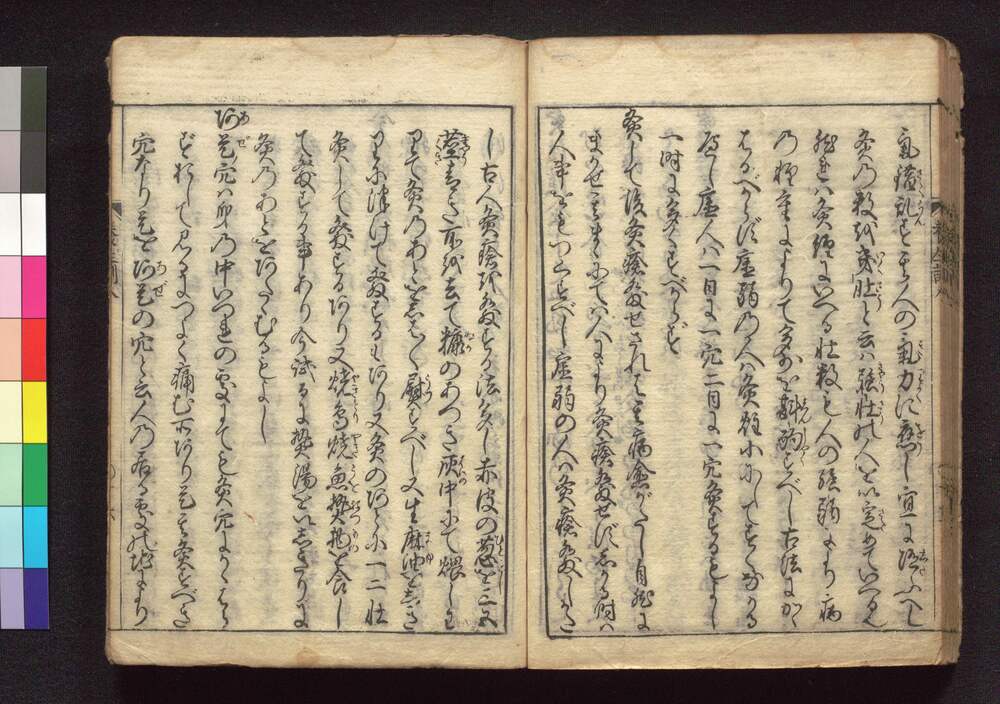 乱す其人の氣力に應し宜に随ふへし
灸の数を幾壮と云は強壮の人を以定めていへる也
然れは灸経にいへる壮数も人の強弱により病
の軽重によりて多少を斟酌すべし古法にかゝ
はるべからず虚弱の人は灸炷小にしてすくなかる
べし虚人は一日に一穴二日に一穴灸するもよし
一時に多くすべからず
灸して後灸瘡発せされは其病愈がたし自然に
まかせそのまゝにては人により灸瘡発せずしかる時は
人事をもつくすべし虚弱の人は灸瘡発しがた
し古人灸瘡を発する法多し赤皮の葱を三五
茎青き所を去て糠のあつき灰中にて煨しわ
りて灸のあとをしばしば熨すべし又生麻油をしき
りに漬けて発するもあり又灸のあとに一二壮
灸して発するあり又焼鳥焼魚熱物を食し
て発する事あり今試るに熱湯を以しきりに
灸のあとをあたゝむるもよし
阿是穴は身の中いづれの處にても灸穴にかゝはら
ずおして見るにつよく痛む所あり是其灸すべき
穴なり是を阿是の穴と云人の居る處の地により